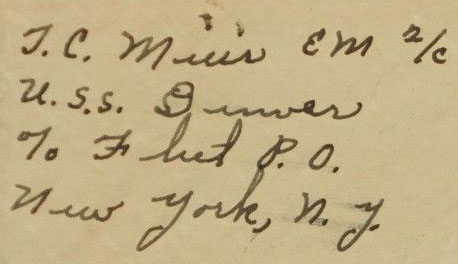 T.C. Muir EM 2/c
U.S.S. Denver
℅ Fleet P.O.
New York, N.Y.